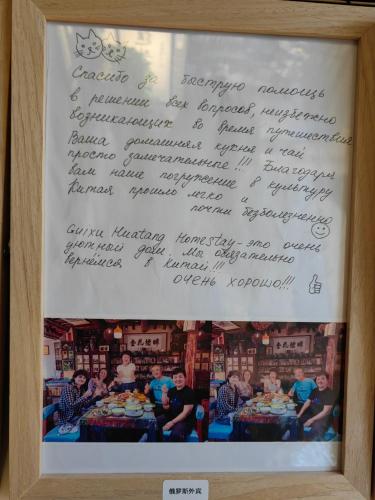 Спасибо за быструю помощь
в решении всех вопросов, неизбежно
возникающих во время путешествия
Ваша домашняя кухня и чай
просто замечательные!!! Благодаря
вам наше погружение в культуру
Китая прошло легко и
почти безболезненно
Guixu Huatang Homestay – это очень
уютный дом. Мы обязательно
вернёмся в Китай!!!
ОЧЕНЬ ХОРОШО!!!
俄罗斯外宾